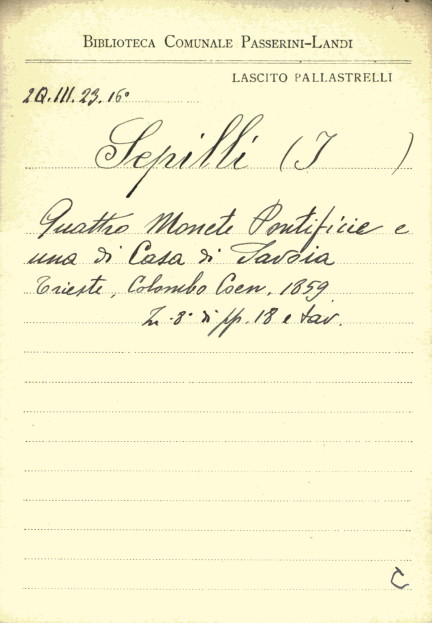 BIBLIOTECA COMUNALE PASSERINI-LANDI
LASCITO PALLASTRELLI
2Q.III.23.16°
Sepilli (I )
Quattro Monete Pontificie e
una di Casa di Savoia
Trieste, Colombo Coen, 1859
In-8° di pp. 18 e tav.
C